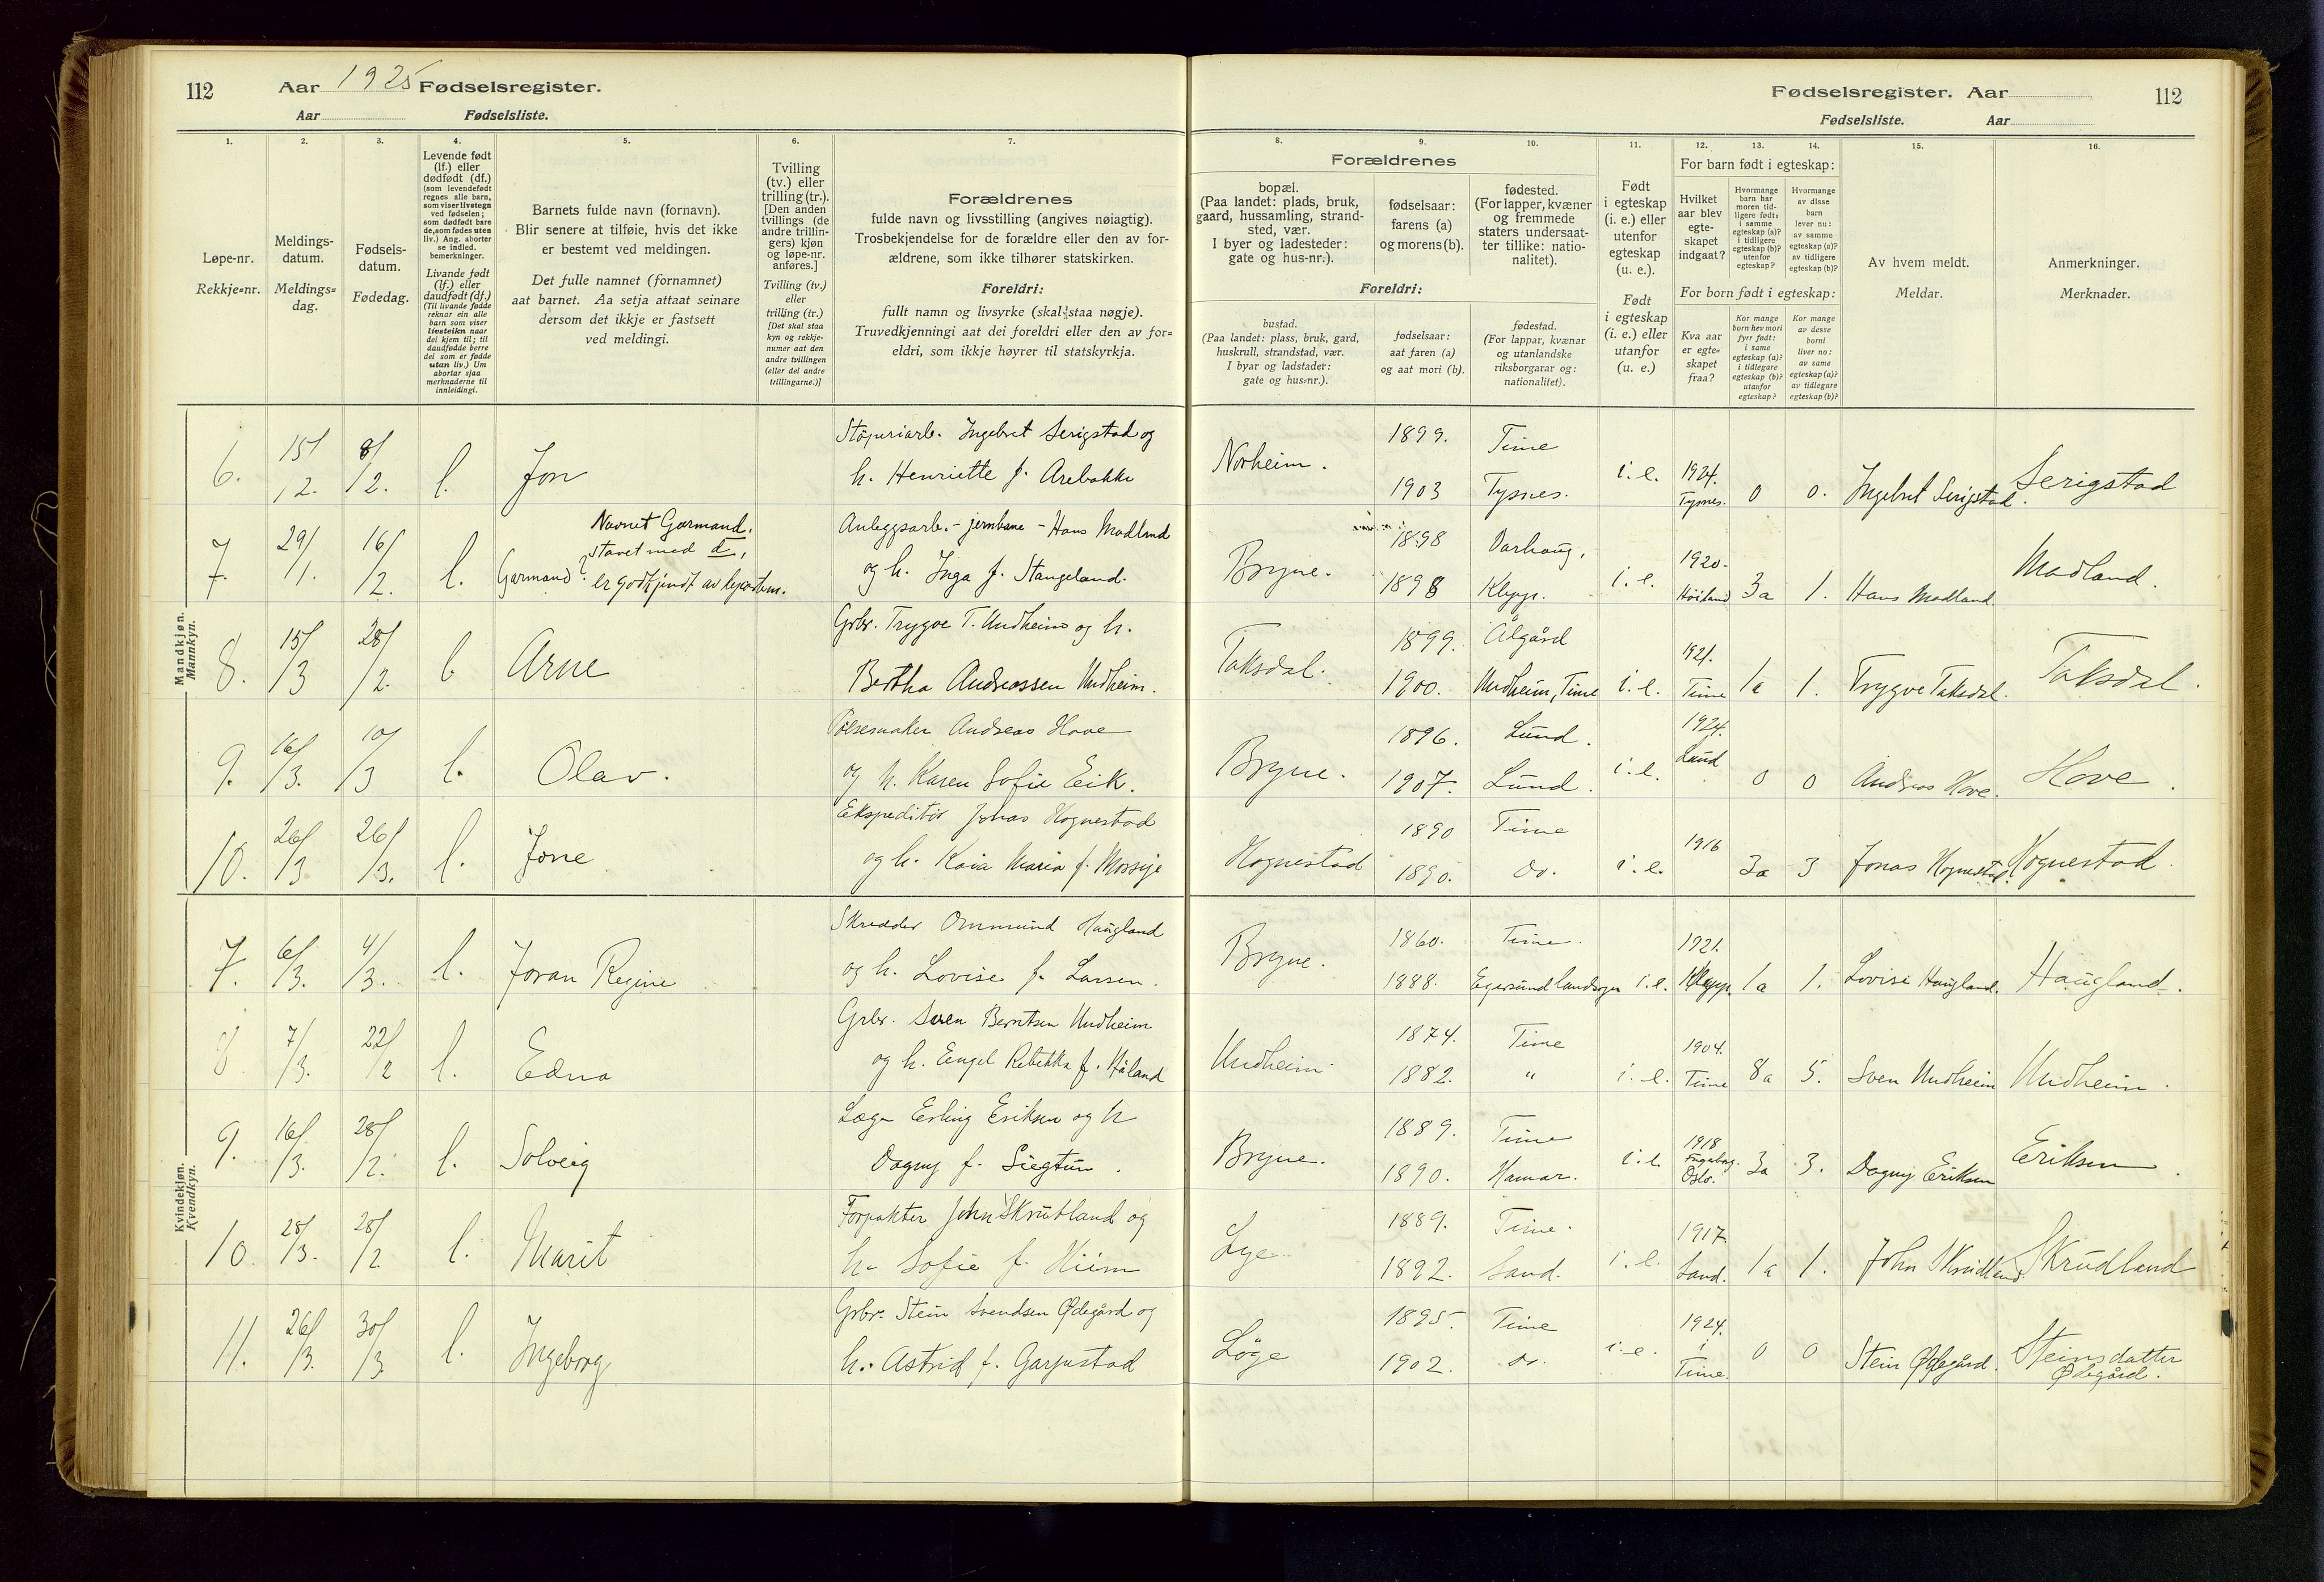 112 Aar 1925 Fødselsregister.
Aar Fødselsliste.
Fødselsregister. Aar 112
Fødselsliste. Aar
1. 2. 3. 4. 5. 6. 7. 8. 9. 10. 11. 12. 13. 14. 15. 16.
Løpe-nr.
Rekkje=nr.
Meldings-
datum.
Meldings=
dag.
Fødsels-
datum.
Fødedag.
Levende født
(lf.) eller
dødfødt (df.)
(som levendefødt
regnes alle barn,
som viser livstegn
ved fødselen;
som dødfødt bare
de, som fødes uten
liv.) Ang. aborter
se indled.
bemerkninger.
Livande født
(lf.) eller
daudfødt (df.)
(Til livande fødde
reknar ein alle
barn som viser
livsteikn naar
dei kjem til; til
daudfødde berre
dei som er fødde
utan liv.) Um
abortar sjaa
merknaderne til
innleidingi.
Barnets fulde navn (fornavn).
Blir senere at tilføie, hvis det ikke
er bestemt ved meldingen.
Det fulle namnet (fornamnet)
aat barnet. Aa setja attaat seinare
dersom det ikkje er fastsett
ved meldingi.
Tvilling
(tv.) eller
trilling (tr.).
[Den anden
tvillings (de
andre trillin-
gers) kjøn
og løpe-nr.
anføres.]
Tvilling (tv.)
eller
trilling (tr.)
[Det skal staa
kyn og rekkje-
numer aat den
andre tvillingen
(eller dei andre
trillingarne.)]
Forældrenes
fulde navn og livsstilling (angives nøiagtig).
Trosbekjendelse for de forældre eller den av for-
ældrene, som ikke tilhører statskirken.
Foreldri:
fullt namn og livsyrke (skal staa nøgje).
Truvedkjenningi aat dei foreldri eller den av for=
eldri, som ikkje høyrer til statskyrkja.
Forældrenes
bopæl.
(Paa landet: plads, bruk,
gaard, hussamling, strand-
sted, vær.
I byer og ladesteder:
gate og hus-nr.).
fødselsaar:
farens (a)
og morens (b).
fødested.
(For lapper, kvæner
og fremmede
staters undersaat-
ter tillike: natio-
nalitet).
Foreldri:
bustad.
(Paa landet: plass, bruk, gard,
huskrull, strandstad, vær.
I byar og ladstader:
gate og hus=nr.).
fødselsaar:
aat faren (a)
og aat mori (b).
fødestad.
(For lappar, kvænar
og utanlandske
riksborgarar og:
nationalitet).
Født
i egteskap
(i. e.) eller
utenfor
egteskap
(u. e.).
Født
i egteskap
(i. e.) eller
utanfor
(u. e.)
For barn født i egteskap:
Hvilket
aar blev
egte-
skapet
indgaat?
Hvormange
barn har
moren tid-
ligere født:
i samme
egteskap (a)?
i tidligere
egteskap (b)?
utenfor
egteskap?
Hvormange
av disse
barn
lever nu:
av samme
egteskap (a)?
av tidligere
egteskap (b)?
For born født i egteskap:
Kva aar
er egte=
skapet
fraa?
Kor mange
born hev mori
fyrr født:
i same
egteskap (a)?
i tidlegare
egteskap (b)?
utanfor
egteskap?
Kor mange
av desse
borni
liver no:
av same
egteskap (a)?
av tidlegare
egteskap (b)?
Av hvem meldt.
Meldar.
Anmerkninger.
Merknader.
Mandkjøn.
Mannkyn.
6. 15/2. 8/2. l. Jon
Støperiarb. Ingebret Serigstad og
h. Henriette f. Arebakke
Norheim. 1899. Time
1903 Tysnes. i. e. 1924. Tysnes. 0 0. Ingebret Serigstad. Serigstad
7. 29/1. 16/2. l. Garmand?
Navnet Garmand,
stavet med d,
er godkjendt av departem.
Anleggsarb. - jernbane - Hans Madland
og h. Inga f. Stangeland.
Bryne. 1898 Varhaug,
1898 Klepp. i. e. 1920. Høiland 3a 1. Hans Madland. Madland.
8. 15/3 28/2. l. Arne
Grbr. Trygve T. Undheim og h.
Bertha Andreassen Undheim.
Taksdal. 1899. Ålgård
1900. Undheim, Time i. e. 1921. Time 1a 1. Trygve Taksdal. Taksdal.
9. 16/3. 10/3 l. Olav.
Pølsemaker Andreas Hove
og h. Karen Sofie Eik.
Bryne. 1896. Lund.
1907. Lund. i. e. 1924. Lund 0 0 Andreas Hove. Hove.
10. 26/3 26/3. l. Jone
Ekspeditør Jonas Hognestad
og h. Kaia Maria f. Mossige
Hognestad 1890 Time
1890. do. i. e. 1916 3a 3 Jonas Hognestad. Hognestad.
Kvindekjøn.
Kvendkyn.
7. 6/3. 4/3. l. Joran Regine
Skredder Ommund Haugland
og h. Lovise f. Larsen.
Bryne. 1860. Time.
1888. Egersund landsogn i. e. 1921. Klepp. 1a 1. Lovise Haugland. Haugland.
8 7/3. 22/2 l. Edna
Grbr. Sven Berntsen Undheim
og h. Engel Rebekka f. Håland
Undheim. 1874. Time
1882. " i. e. 1904. Time 8a 5. Sven Undheim Undheim.
9. 16/3. 28/2. l. Solveig
Læge Erling Eriksen og h
Dagny f. Siegtun.
Bryne. 1889. Time
1890. Hamar. i. e. 1918 Oslo. 3a 3. Dagny Eriksen Eriksen.
10. 28/3. 28/2 l. Marit
Forpakter John Skrudland og
h. Sofie f. Hiim
Lye 1889. Time.
1892. Sand. i. e. 1917. Sand. 1a 1. John Skrudland. Skrudland
11. 26/3. 30/3 l. Ingeborg
Grbr. Stein Svendsen Ødegård og
h. Astrid f. Garpestad
Løge 1895. Time
1902. do. i. e. 1924. i Time. 0 0 Stein Ødegård. Steinsdatter
Ødegård.